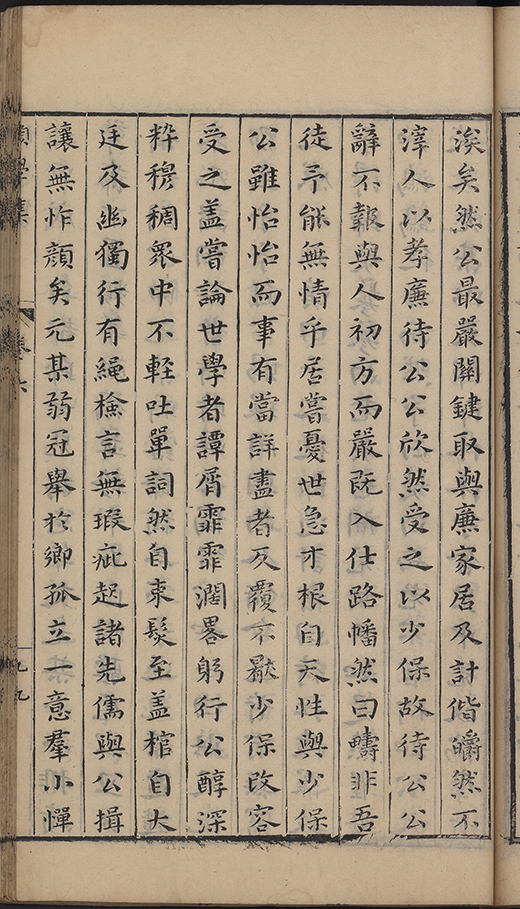 涘矣然公最嚴關鍵取與廉家居及計偕皭然不
滓人以孝廉待公公欣然受之以少保故待公公
辭不報與人初方而嚴既入仕路幡然曰疇非吾
徒予能無情乎居嘗憂世急才根自天性與少保
公雖怡怡而事有當詳盡者反覆不厭少保改容
受之盖嘗論世學者譚屑霏霏濶畧躬行公醇深
粹穆稠衆中不輕吐單詞然自束髮至盖棺自大
廷及幽獨行有繩檢言無瑕疵起諸先儒與公揖
讓無怍顔矣元某弱冠舉於鄉孤立一意羣小憚
學集
卷六
九九